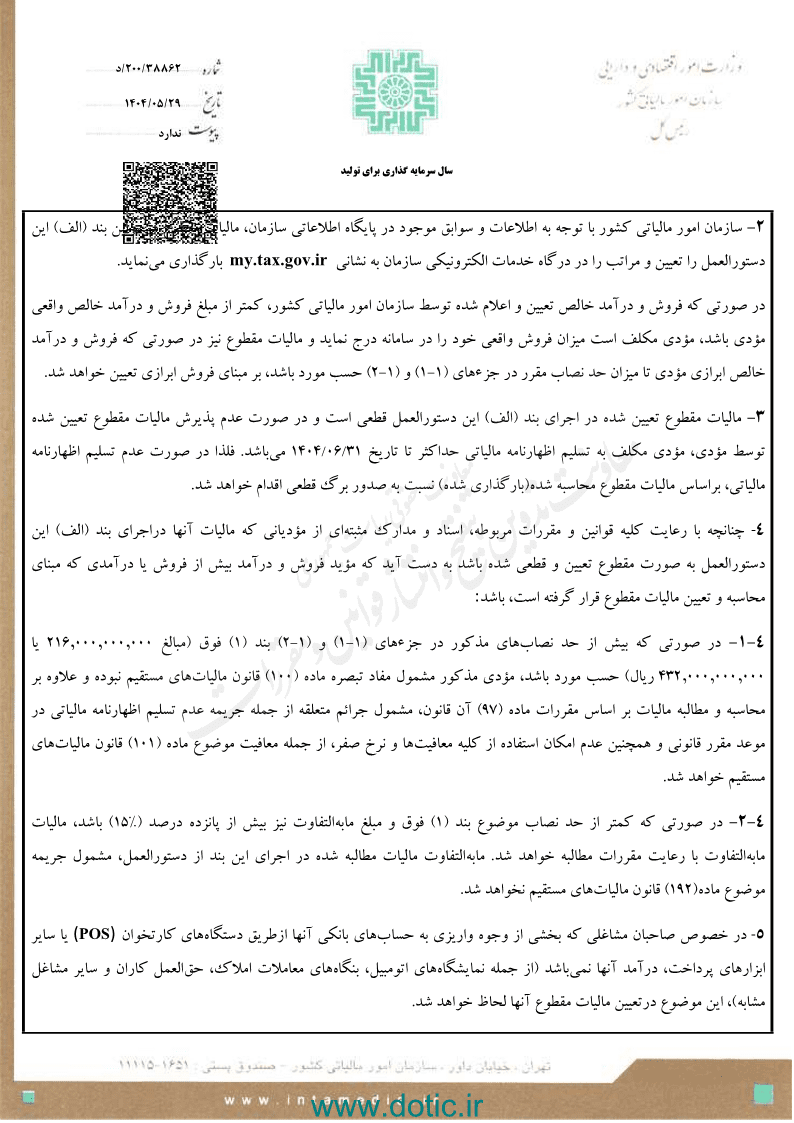 وزارت امور اقتصادی و دارایی
سازمان امور مالیاتی کشور
رئیس کل
شماره ۲۰۰/۳۸۸۶۲/د
تاریخ ۱۴۰۴/۰۵/۲۹
پیوست ندارد
سال سرمایه گذاری برای تولید
۲– سازمان امور مالیاتی کشور با توجه به اطلاعات و سوابق موجود در پایگاه اطلاعاتی سازمان، مالیا بند (الف) این
دستورالعمل را تعیین و مراتب را در درگاه خدمات الکترونیکی سازمان به نشانی my.tax.gov.ir بارگذاری می‌نماید.
در صورتی که فروش و درآمد خالص تعیین و اعلام شده توسط سازمان امور مالیاتی کشور، کمتر از مبلغ فروش و درآمد خالص واقعی
مؤدی باشد، مؤدی مکلف است میزان فروش واقعی خود را در سامانه درج نماید و مالیات مقطوع نیز در صورتی که فروش و درآمد
خالص ابرازی مؤدی تا میزان حد نصاب مقرر در جزءهای (۱-۱) و (۱-۲) حسب مورد باشد، بر مبنای فروش ابرازی تعیین خواهد شد.
۳– مالیات مقطوع تعیین شده در اجرای بند (الف) این دستورالعمل قطعی است و در صورت عدم پذیرش مالیات مقطوع تعیین شده
توسط مؤدی، مؤدی مکلف به تسلیم اظهارنامه مالیاتی حداکثر تا تاریخ ۱۴۰۴/۰۶/۳۱ می‌باشد. فلذا در صورت عدم تسلیم اظهارنامه
مالیاتی، براساس مالیات مقطوع محاسبه شده(بارگذاری شده) نسبت به صدور برگ قطعی اقدام خواهد شد.
۴- چنانچه با رعایت کلیه قوانین و مقررات مربوطه، اسناد و مدارک مثبته‌ای از مؤدیانی که مالیات آنها دراجرای بند (الف) این
دستورالعمل به صورت مقطوع تعیین و قطعی شده باشد به دست آید که مؤید فروش و درآمد بیش از فروش یا درآمدی که مبنای
محاسبه و تعیین مالیات مقطوع قرار گرفته است، باشد:
۴–۱– در صورتی که بیش از حد نصاب‌های مذکور در جزءهای (۱-۱) و (۱-۲) بند (۱) فوق (مبالغ ۲۱۶,۰۰۰,۰۰۰,۰۰۰ یا
۴۳۲,۰۰۰,۰۰۰,۰۰۰ ریال) حسب مورد باشد، مؤدی مذکور مشمول مفاد تبصره ماده (۱۰۰) قانون مالیات‌های مستقیم نبوده و علاوه بر
محاسبه و مطالبه مالیات بر اساس مقررات ماده (۹۷) آن قانون، مشمول جرائم متعلقه از جمله جریمه عدم تسلیم اظهارنامه مالیاتی در
موعد مقرر قانونی و همچنین عدم امکان استفاده از کلیه معافیت‌ها و نرخ صفر، از جمله معافیت موضوع ماده (۱۰۱) قانون مالیات‌های
مستقیم خواهد شد.
۴–۲– در صورتی که کمتر از حد نصاب موضوع بند (۱) فوق و مبلغ مابه‌التفاوت نیز بیش از پانزده درصد (۱۵٪) باشد، مالیات
مابه‌التفاوت با رعایت مقررات مطالبه خواهد شد. مابه‌التفاوت مالیات مطالبه شده در اجرای این بند از دستورالعمل، مشمول جریمه
موضوع ماده(۱۹۲) قانون مالیات‌های مستقیم نخواهد شد.
۵- در خصوص صاحبان مشاغلی که بخشی از وجوه واریزی به حساب‌های بانکی آنها ازطریق دستگاه‌های کارتخوان (POS) یا سایر
ابزارهای پرداخت، درآمد آنها نمی‌باشد (از جمله نمایشگاه‌های اتومبیل، بنگاه‌های معاملات املاک، حق‌العمل کاران و سایر مشاغل
مشابه)، این موضوع درتعیین مالیات مقطوع آنها لحاظ خواهد شد.
تهران ، خیابان داور ، سازمان امور مالیاتی کشور – صندوق پستی : ۱۶۵۱-۱۱۱۱۵
www.dotic.ir